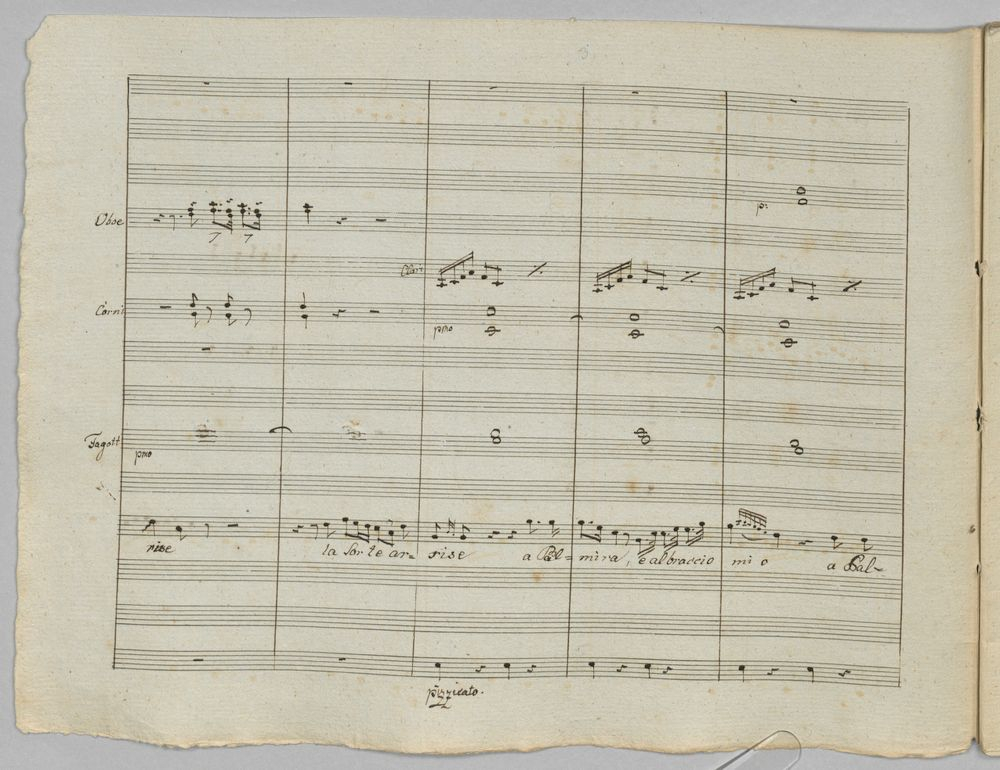 p:
Oboe
Clari
Corni
pmo
Fagott
pmo
rise la Sorte ar= rise a Pal= mira, e al braccio mio a Pal=
pizzicato.